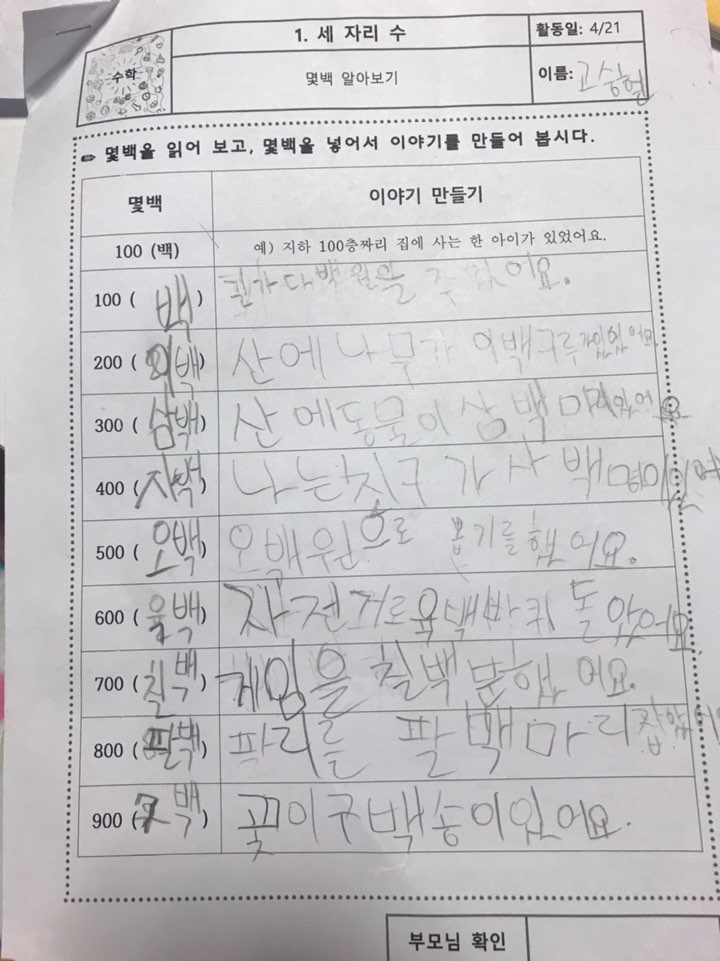 수학
1. 세 자리 수
활동일: 4/21
몇백 알아보기
이름: 고승현
✏ 몇백을 읽어 보고, 몇백을 넣어서 이야기를 만들어 봅시다.
몇백 이야기 만들기
100 (백) 예) 지하 100층짜리 집에 사는 한 아이가 있었어요.
100 ( 백 ) 길가다 백원을 주웠어요.
200 ( 이백 ) 산에 나무가 이백구루가 있었어요
300 ( 삼백 ) 산에 동물이 삼백마리 있어요
400 ( 사백 ) 나는 친구가 사백명이
500 ( 오백 ) 오백원으로 뽑기를 했어요.
600 ( 육백 ) 자전거로 육백바퀴 돌았어요
700 ( 칠백 ) 게임을 칠백분했어요.
800 ( 팔백 ) 파리를 팔백마리 잡았
900 ( 구백 ) 꽃이 구백송이 있어요.
부모님 확인